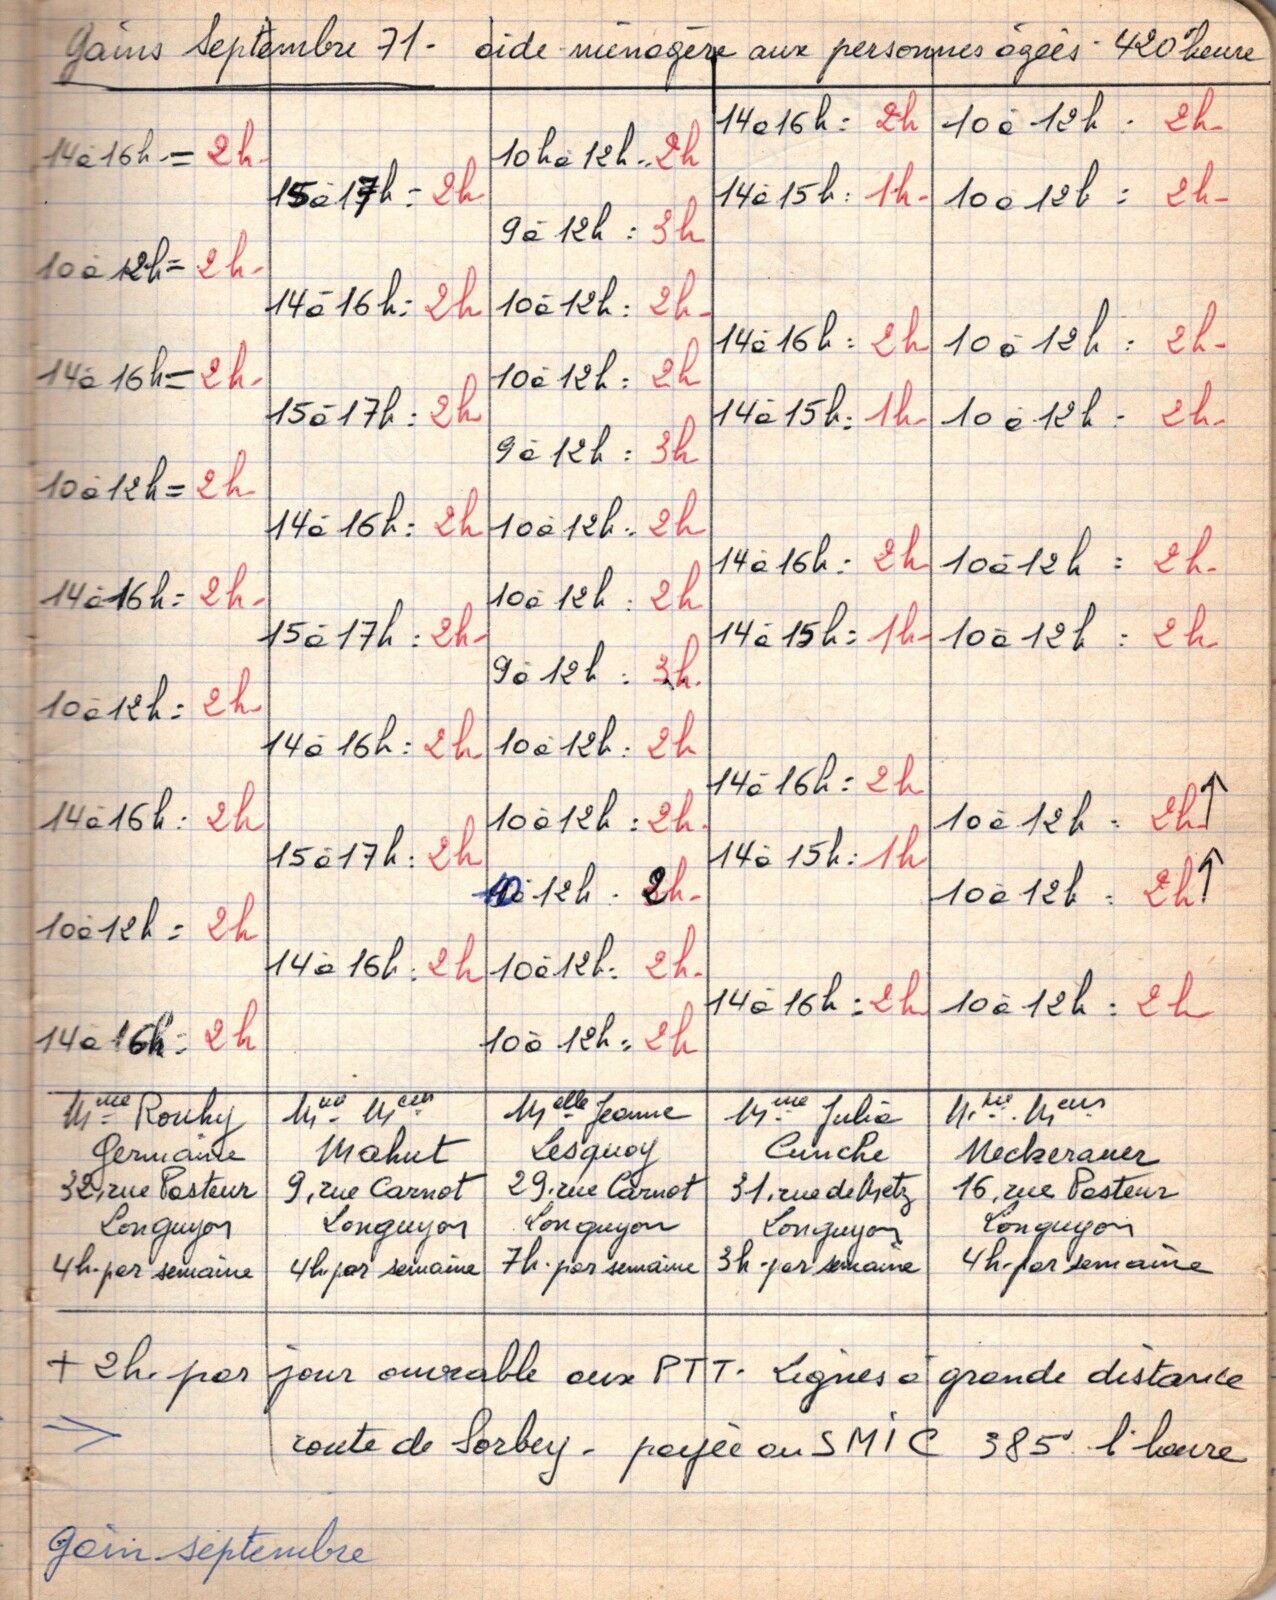 Gains Septembre 71 - aide-ménagère aux personnes âgées - 420 heure
14 à 16h = 2h.
10 à 12h = 2h.
14 à 16h = 2h.
10 à 12h = 2h.
14 à 16h = 2h.
10 à 12h = 2h.
14 à 16h : 2h
10 à 12h = 2h
14 à 16h = 2h
Mme Rouhy
Germaine
32, rue Pasteur
Longuyon
4h. par semaine
15 à 17h = 2h
14 à 16h = 2h
15 à 17h : 2h
14 à 16h : 2h
15 à 17h : 2h-
14 à 16h : 2h
15 à 17h : 2h
14 à 16h : 2h
Mahut
9, rue Carnot
Longuyon
4h. par semaine
10h à 12h .. 2h
9 à 12h : 3h
10 à 12h : 2h-
10 à 12h : 2h
9 à 12h : 3h
10 à 12h : 2h
10 à 12h : 2h
9 à 12h : 3h.
10 à 12h : 2h
10 à 12h : 2h.
10 à 12h . 2h-
10 à 12h : 2h.
10 à 12h = 2h
Melle Jeanne
Lesquoy
29, rue Carnot
Longuyon
7h. par semaine
14 à 16h = 2h
14 à 15h : 1h-
14 à 16h : 2h
14 à 15h : 1h-
14 à 16h : 2h
14 à 15h = 1h-
14 à 16h : 2h
14 à 15h : 1h
14 à 16h : 2h
Mme Julia
Cunche
31, rue de Metz
Longuyon
3h. par semaine
10 à 12h . 2h-
10 à 12h : 2h-
10 à 12h : 2h-
10 à 12h - 2h-
10 à 12h : 2h-
10 à 12h : 2h-
10 à 12h : 2h ↑
10 à 12h : 2h ↑
10 à 12h : 2h
Meckerauer
16, rue Pasteur
Longuyon
4h. par semaine
+ 2h. par jour ouvrable aux PTT. Lignes à grande distance
→ route de Sorbey - payée au SMIC 385 l'heure
Gain septembre